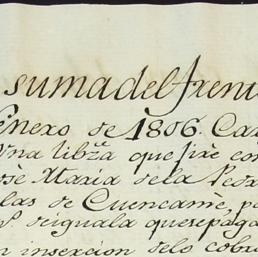 suma del frent
Enero de 1806. Car
Una libza que fixe con
Jose Maria de la Pedr
las de Cuencamè, p
deiguala quesepaga
n insercion delo cobr